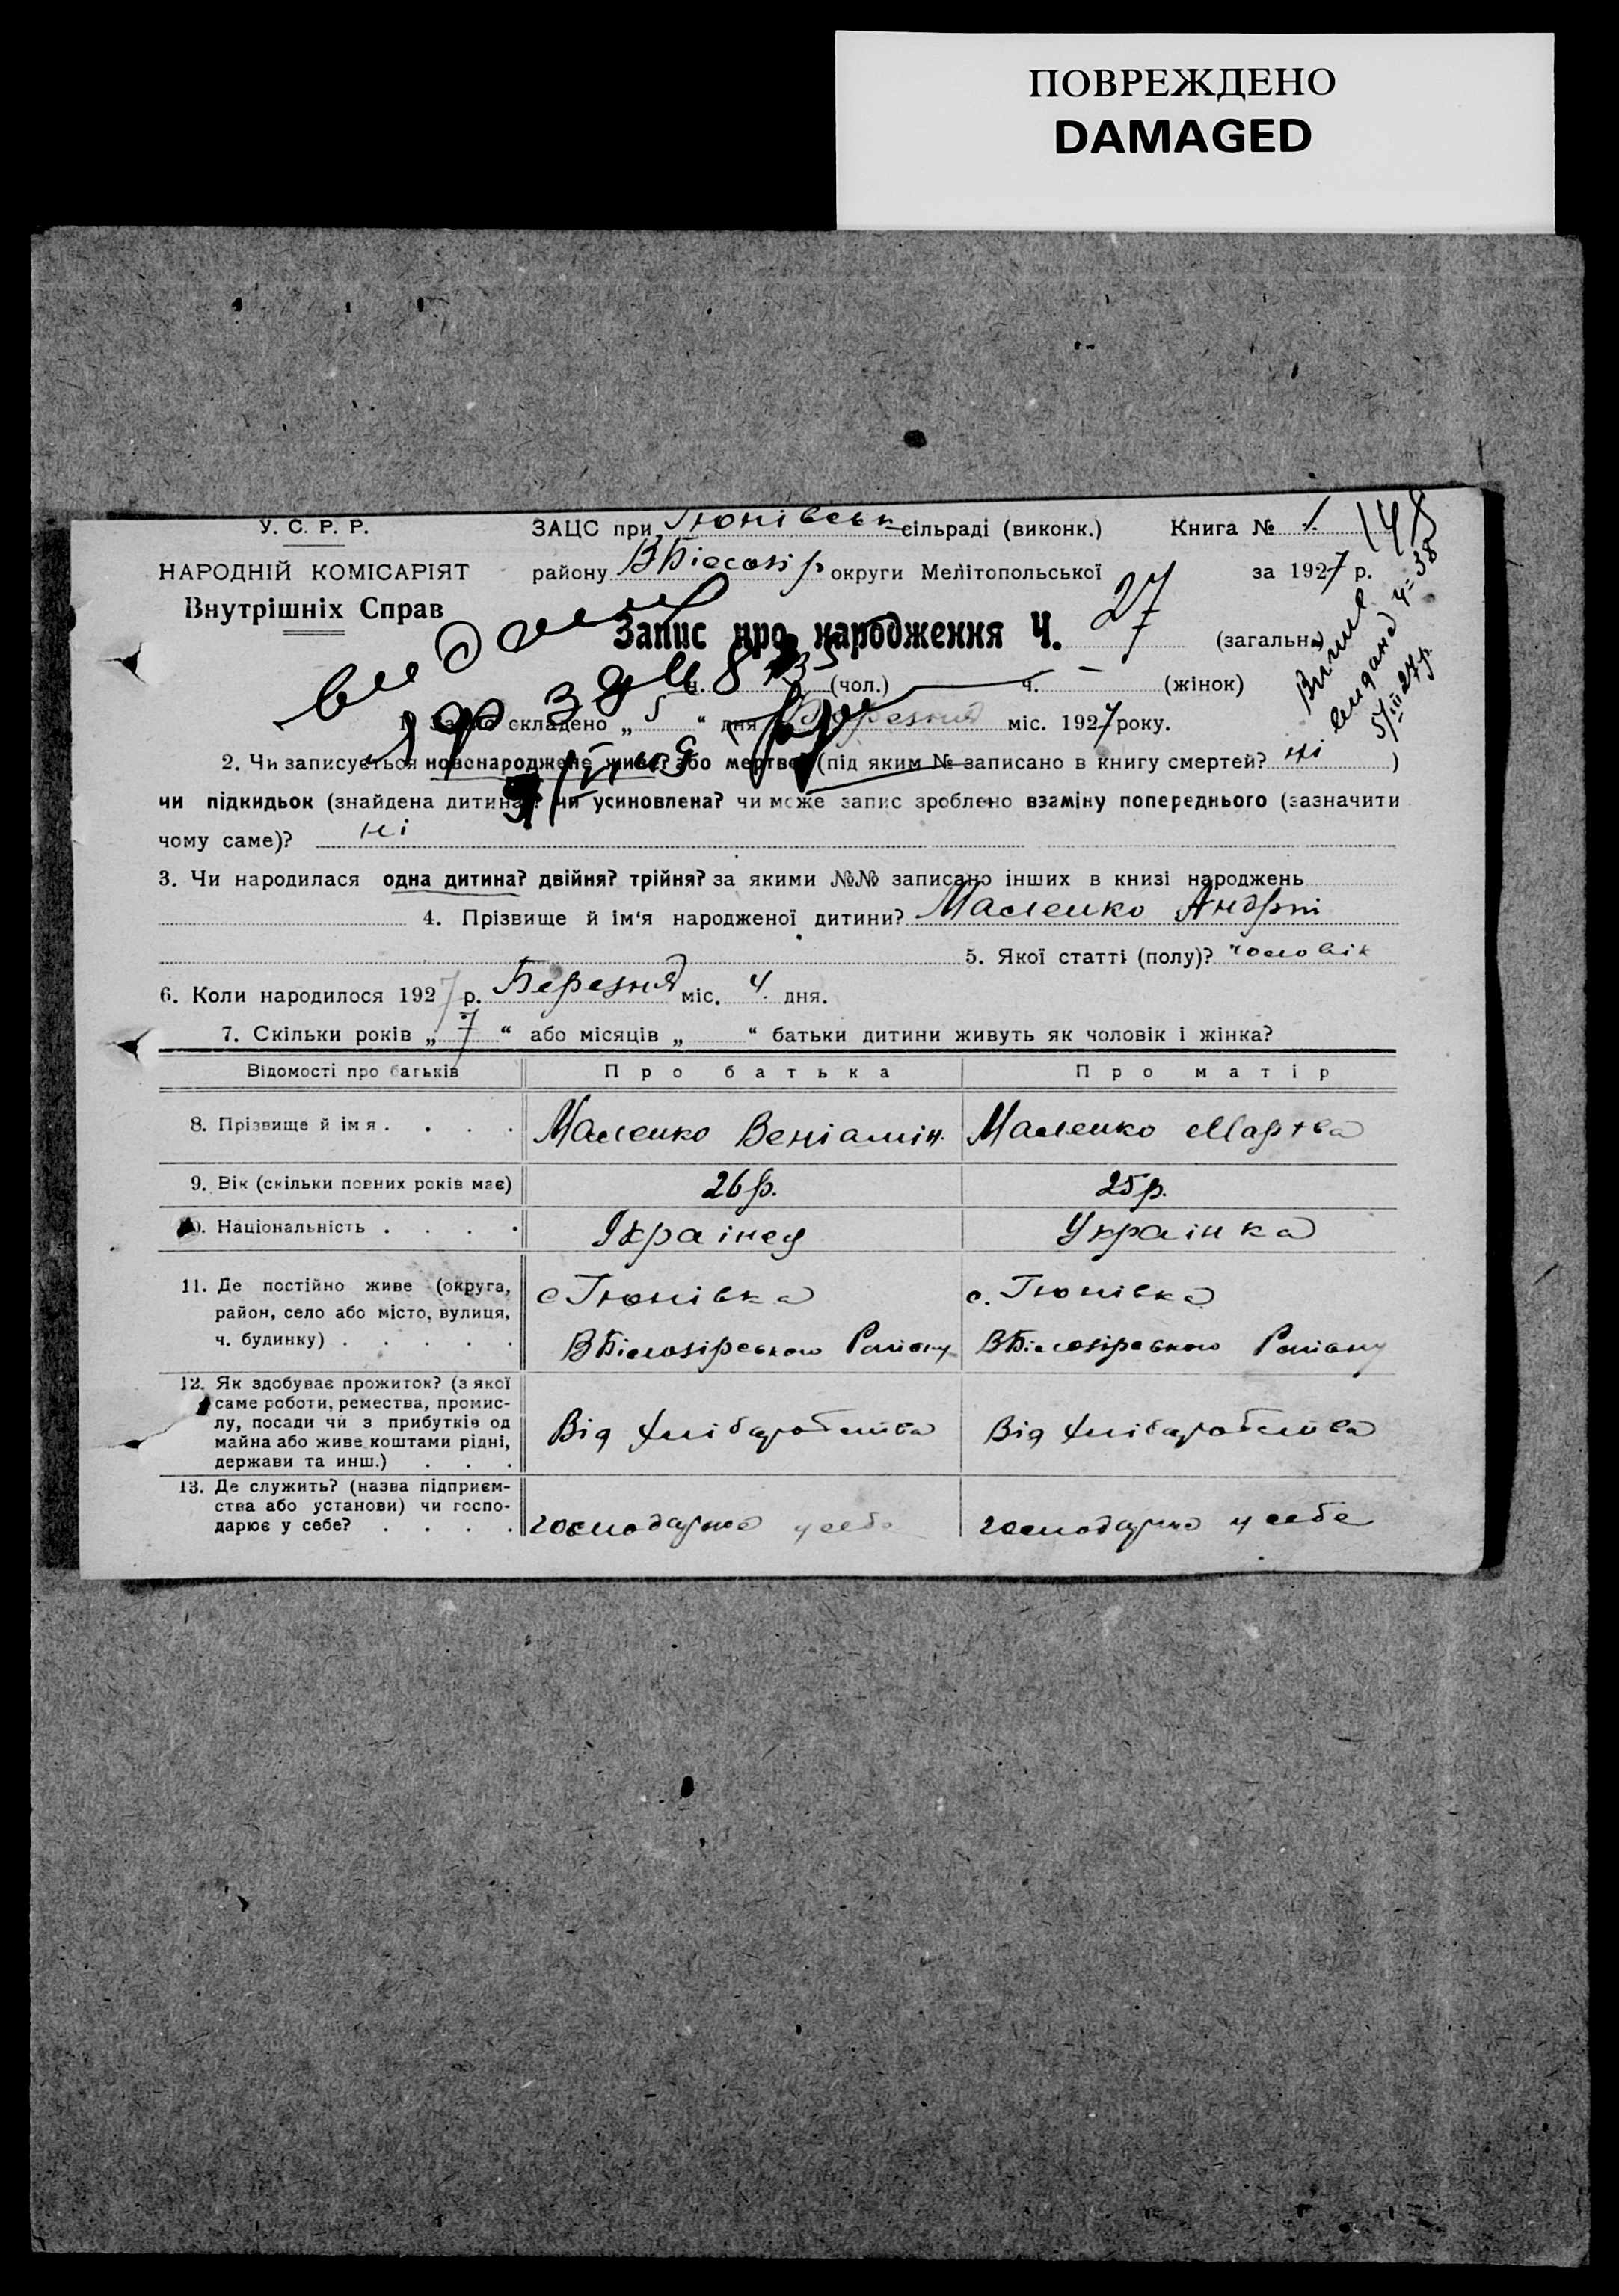 ПОВРЕЖДЕНО
DAMAGED
У. С. Р. Р.
НАРОДНІЙ КОМІСАРІЯТ
Внутрішніх Справ
ЗАЦС при Гюнівськ сільраді (виконк.)
району ВБілозір округи Мелітопольської
Книга № 1
148
за 1927 р.
Запис про народження Ч. 27 (загальна)
ч. (чол.) ч. — (жінок)
Випис видана ч= 38
5/III 27 р.
1. Запис складено „ 5 “ дня Березня міс. 1927 року.
2. Чи записується новонароджене живе? або мертве? (під яким № записано в книгу смертей? ні )
чи підкидьок (знайдена дитина)? чи усиновлена? чи може запис зроблено взаміну попереднього (зазначити
чому саме)? ні
3. Чи народилася одна дитина? двійня? трійня? за якими №№ записано інших в книзі народжень
4. Прізвище й ім‘я народженої дитини? Масленко Андрій
5. Якої статті (полу)? чоловік
6. Коли народилося 1927 р. Березня міс. 4 дня.
7. Скільки років „ 7 “ або місяців „ “ батьки дитини живуть як чоловік і жінка?
Відомості про батьків Про батька Про матір
8. Прізвище й ім я . . . . Масленко Веніамін. Масленко
9. Вік (скільки повних років має) 26 р. 25 р.
10. Національність . . . . Українец Українка
11. Де постійно живе (округа, район, село або місто, вулиця, ч. будинку) . . . . .
с Гюнівка
ВБілозірського Району
с. Гюнівка
ВБілозірського Району
12. Як здобуває прожиток? (з якої саме роботи, ремества, промислу, посади чи з прибутків од майна або живе коштами рідні, держави та инш.) . . .
Від хліборобства
Від хліборобства
13. Де служить? (назва підприємства або установи) чи господарює у себе? . . . .
господарює у себе
господарює у себе